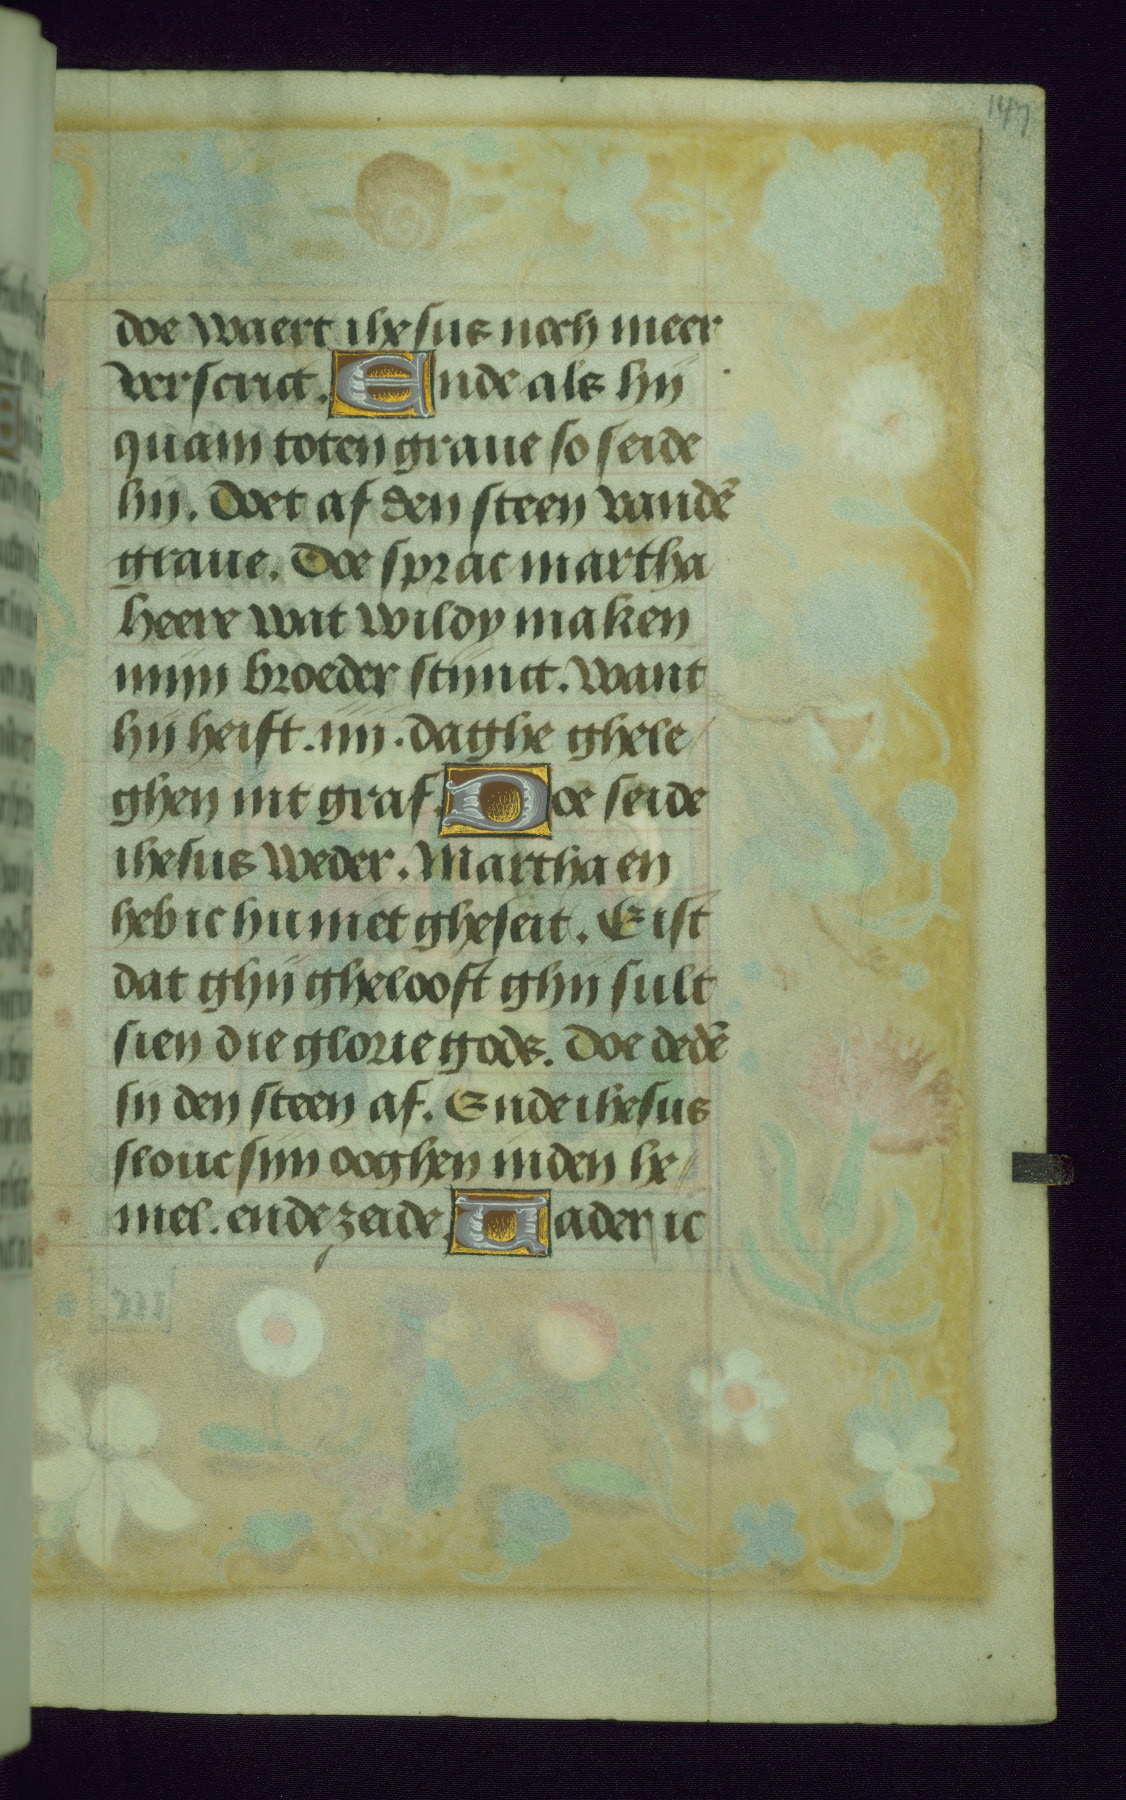 147
doe waert ihesus noch meer
verscrict. Ende als hij
quam toten graue so seide
hij. Doet af den steen vandē
graue. Doe sprac martha
heere wat wildy maken
mijn broeder stinct. want
hij heift .iiij. daghe ghele
ghen int graf. Doe seide
ihesus weder. Martha en
heb ic hu niet gheseit. Eist
dat ghij ghelooft ghij sult
sien die glorie gods. Doe dedē
sij den steen af. Ende ihesus
slouc sijn ooghen inden he
mel. ende zeide. Vader ic